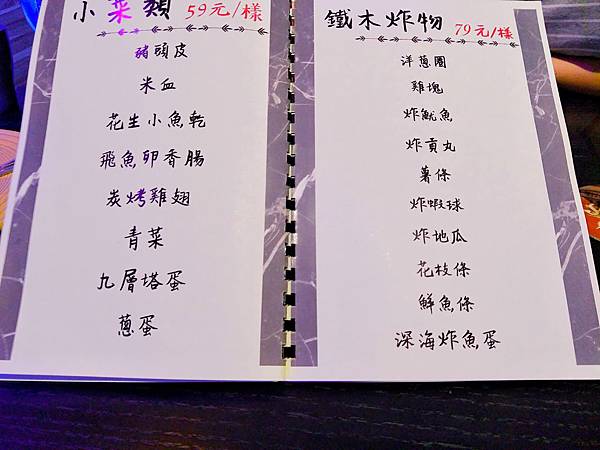 小菜類 59元/樣
豬頭皮
米血
花生小魚乾
飛魚卵香腸
炭烤雞翅
青菜
九層塔蛋
蔥蛋
鐵木炸物 79元/樣
洋蔥圈
雞塊
炸魷魚
炸貢丸
薯條
炸蝦球
炸地瓜
花枝條
鮮魚條
深海炸魚蛋